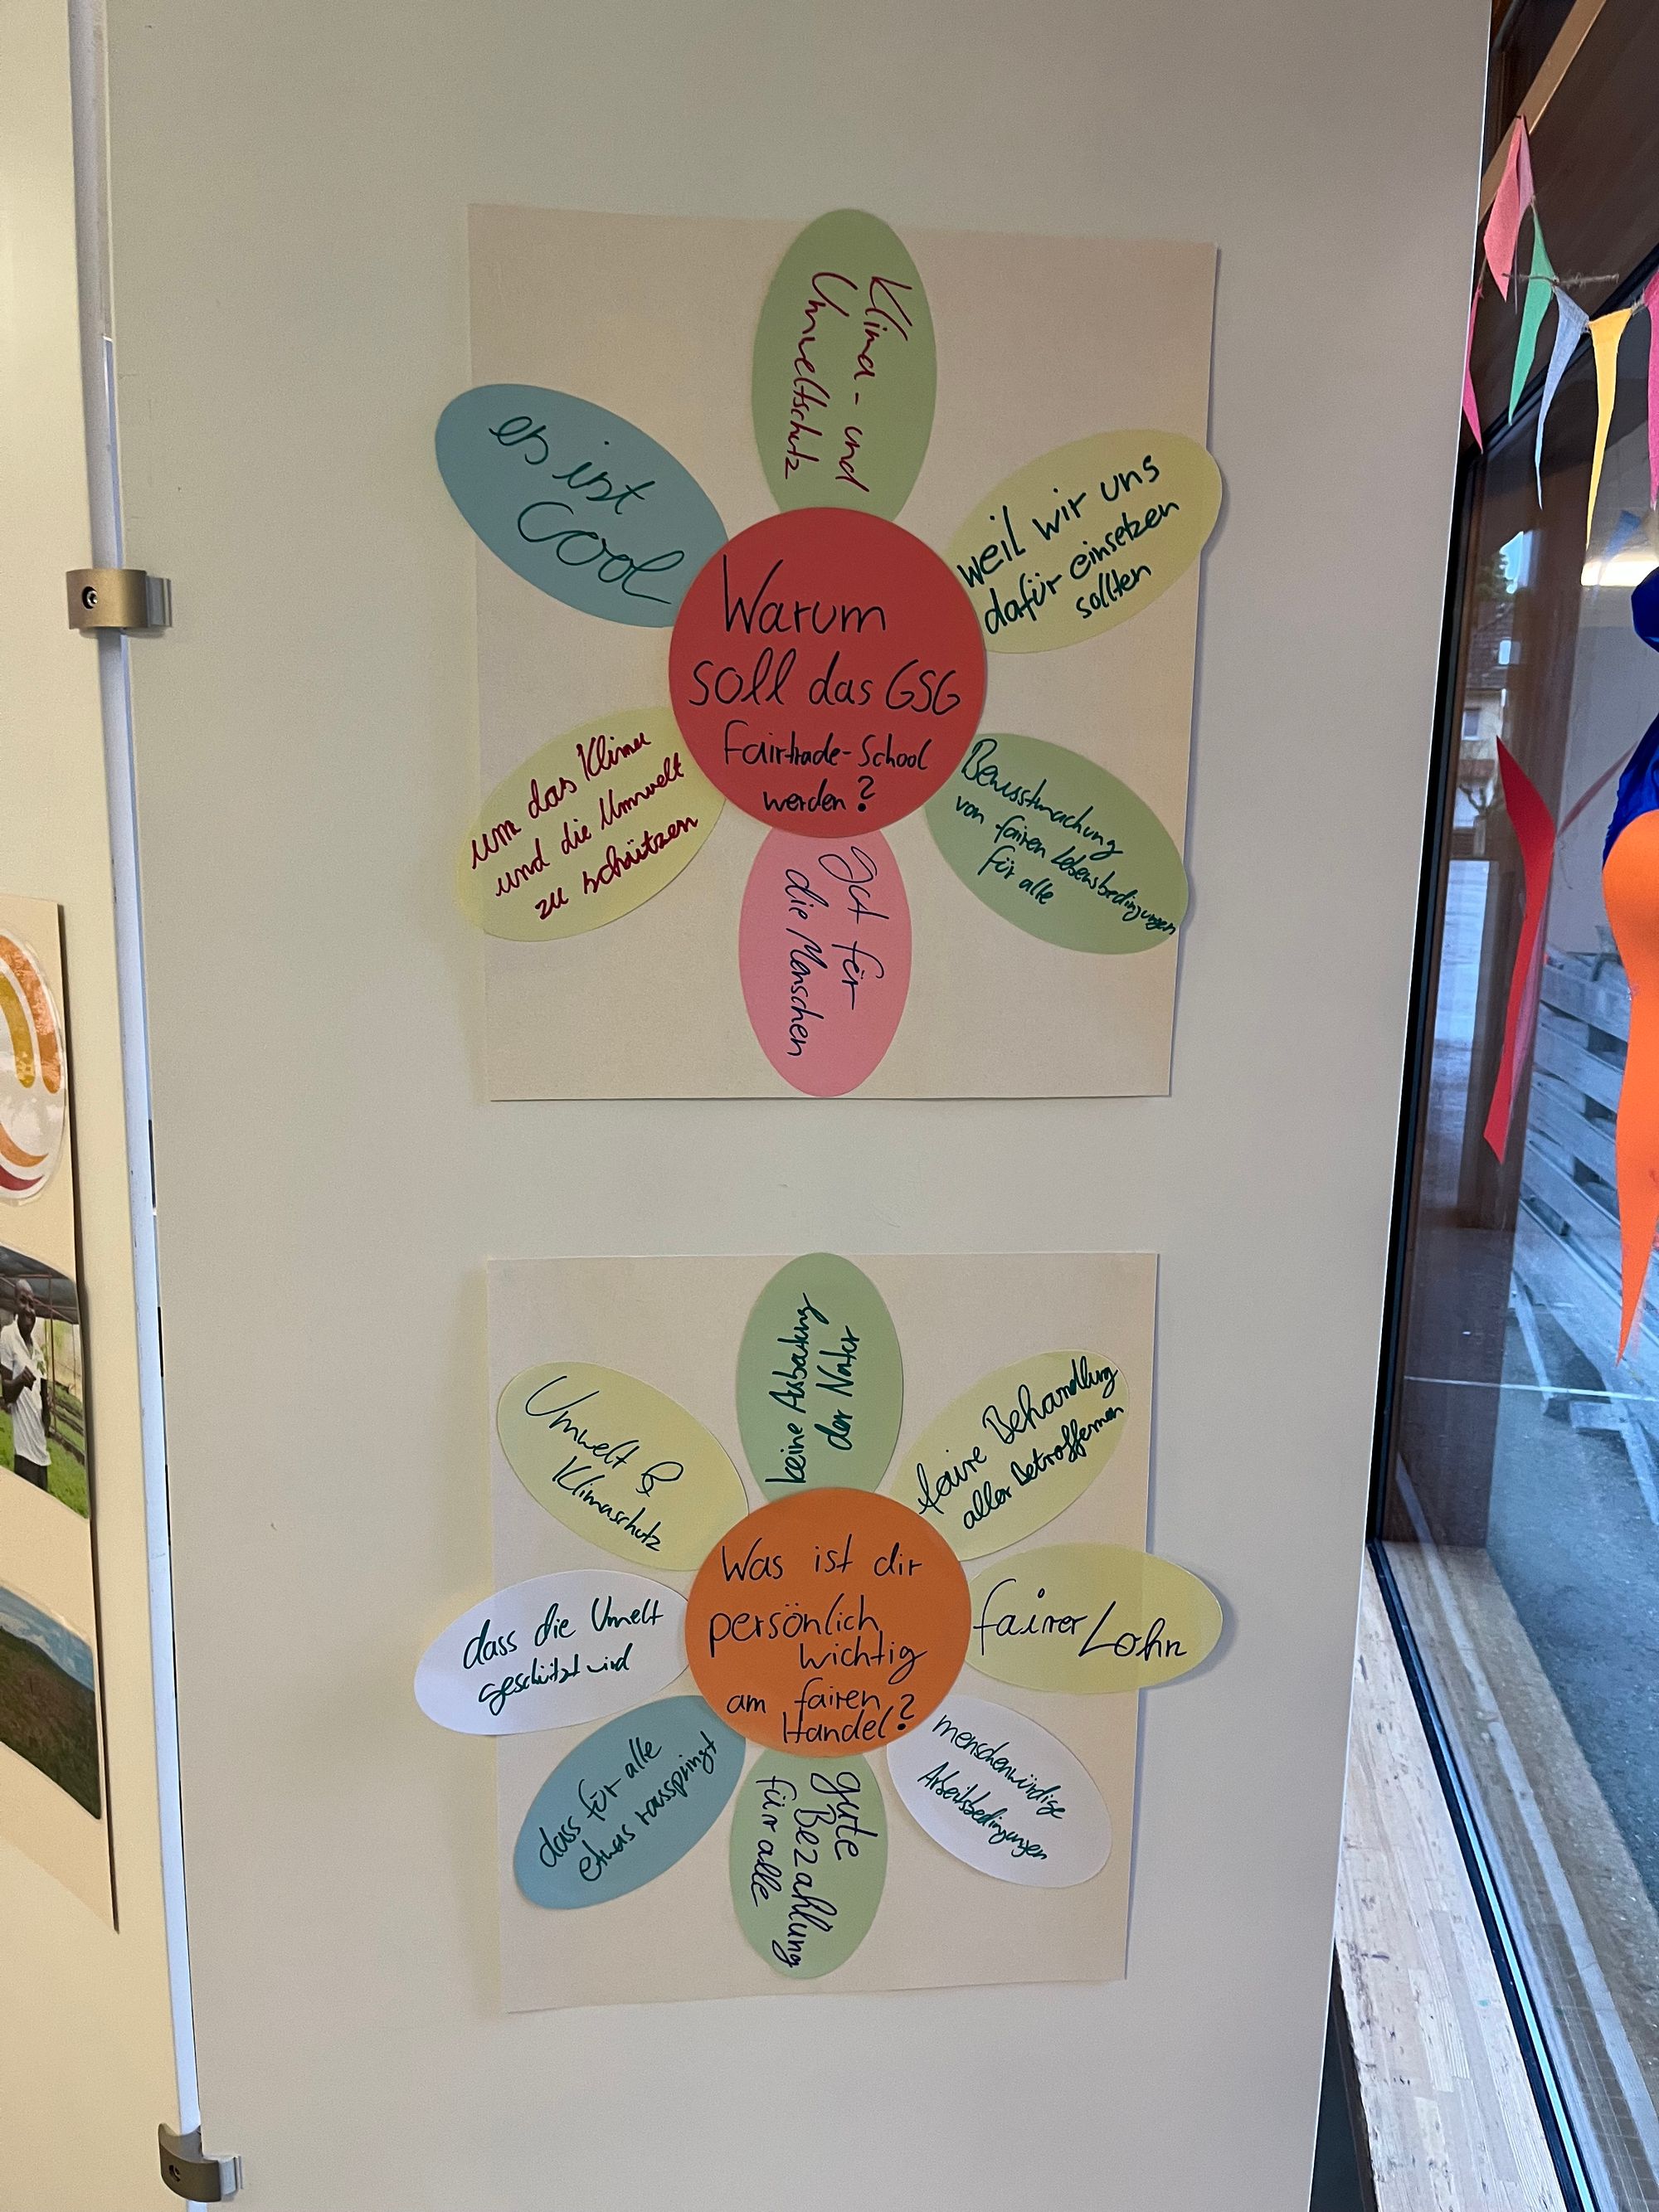 Warum
soll das GSG
Fairtrade-School
werden?
Klima- und
Umweltschutz
weil wir uns
dafür einsetzen
sollten
Bewusstmachung
von fairen Lebensbedingungen
für alle
gut für
die Menschen
um das Klima
und die Umwelt
zu schützen
es ist
cool
Was ist dir
persönlich
wichtig
am fairen
Handel?
keine Ausbeutung
der Natur
faire Behandlung
aller Betroffenen
fairer Lohn
menschenwürdige
Arbeitsbedingungen
gute
Bezahlung
für alle
dass für alle
etwas rausspringt
dass die Umwelt
geschützt wird
Umwelt &
Klimaschutz